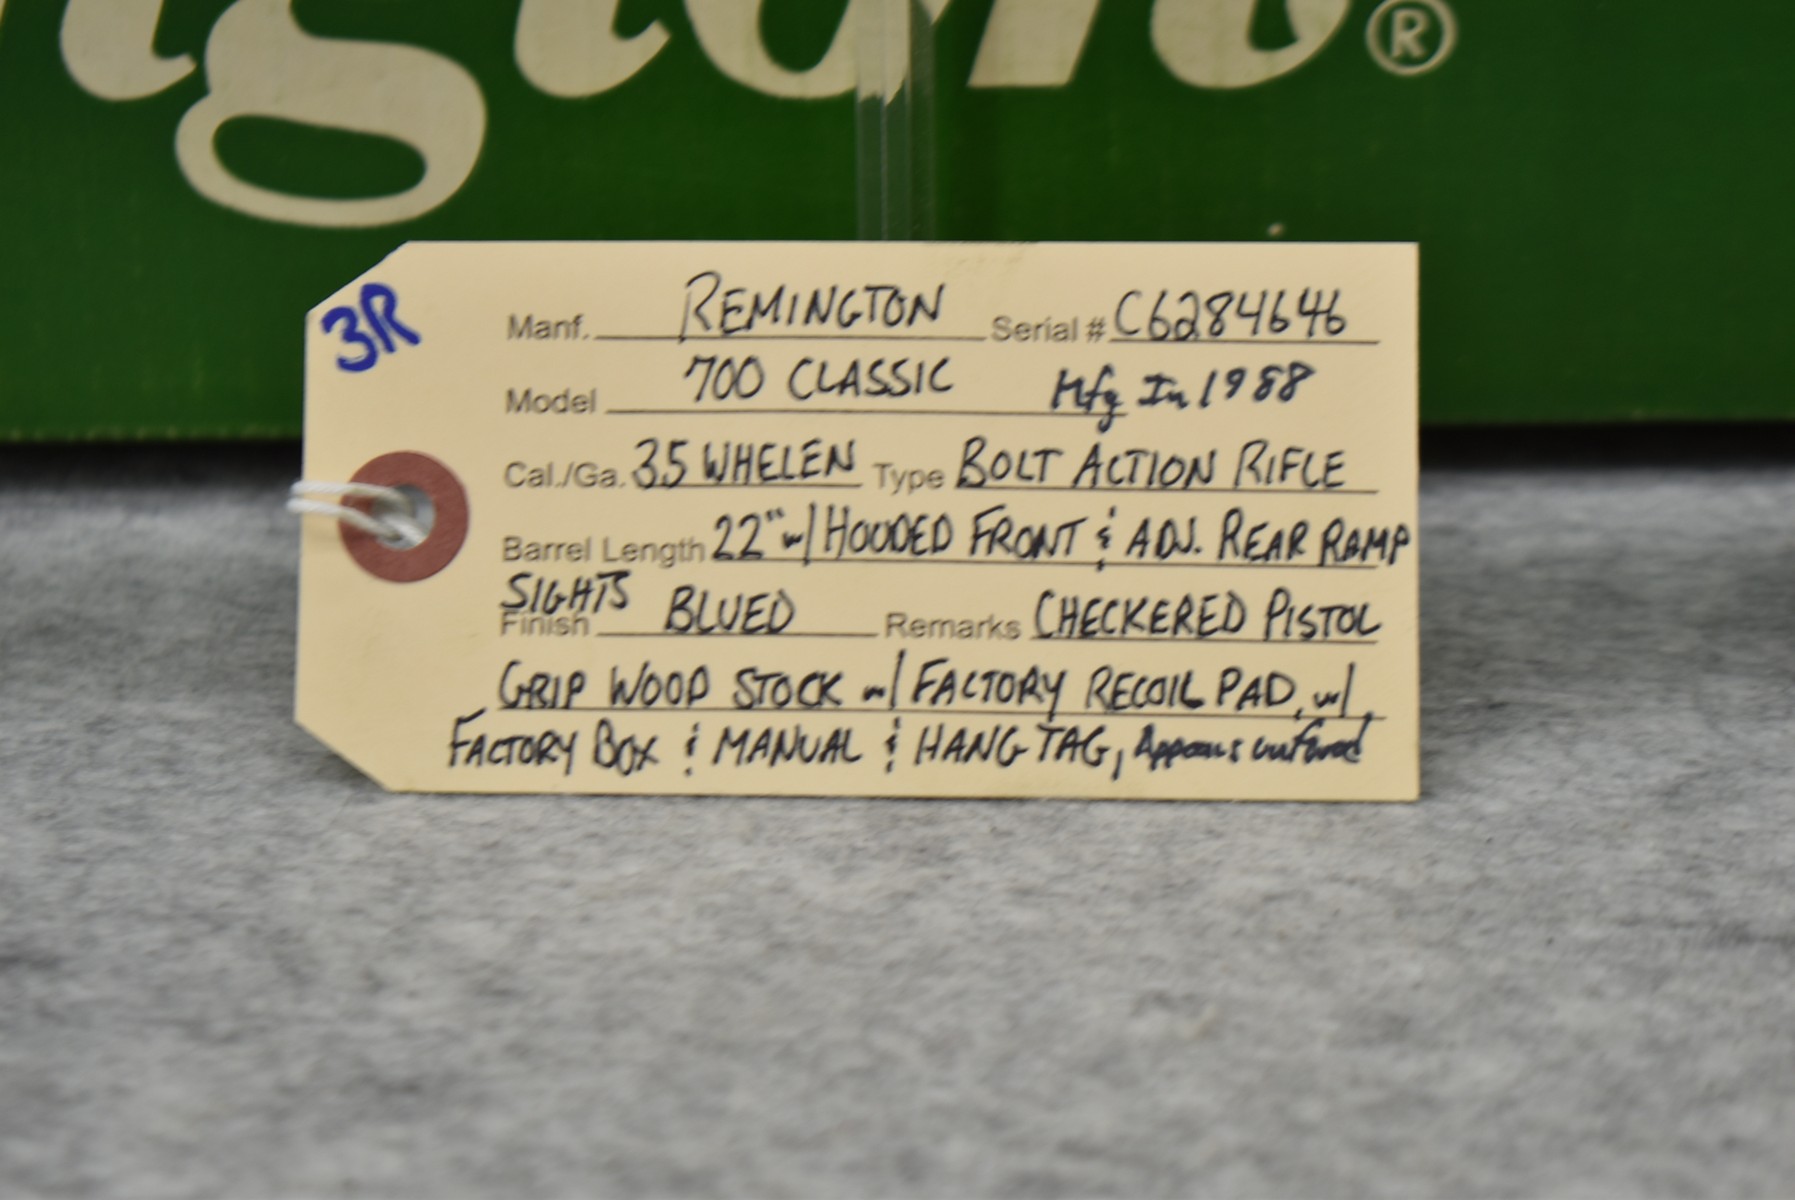 ington®
3R
Manf. REMINGTON Serial # C6284646
Model 700 CLASSIC Mfg In 1988
Cal./Ga. 35 WHELEN Type BOLT ACTION RIFLE
Barrel Length 22" w/ HOODED FRONT & ADJ. REAR RAMP
SIGHTS
Finish BLUED Remarks CHECKERED PISTOL
GRIP WOOD STOCK w/ FACTORY RECOIL PAD, w/
FACTORY BOX & MANUAL & HANG TAG, Appears unfired